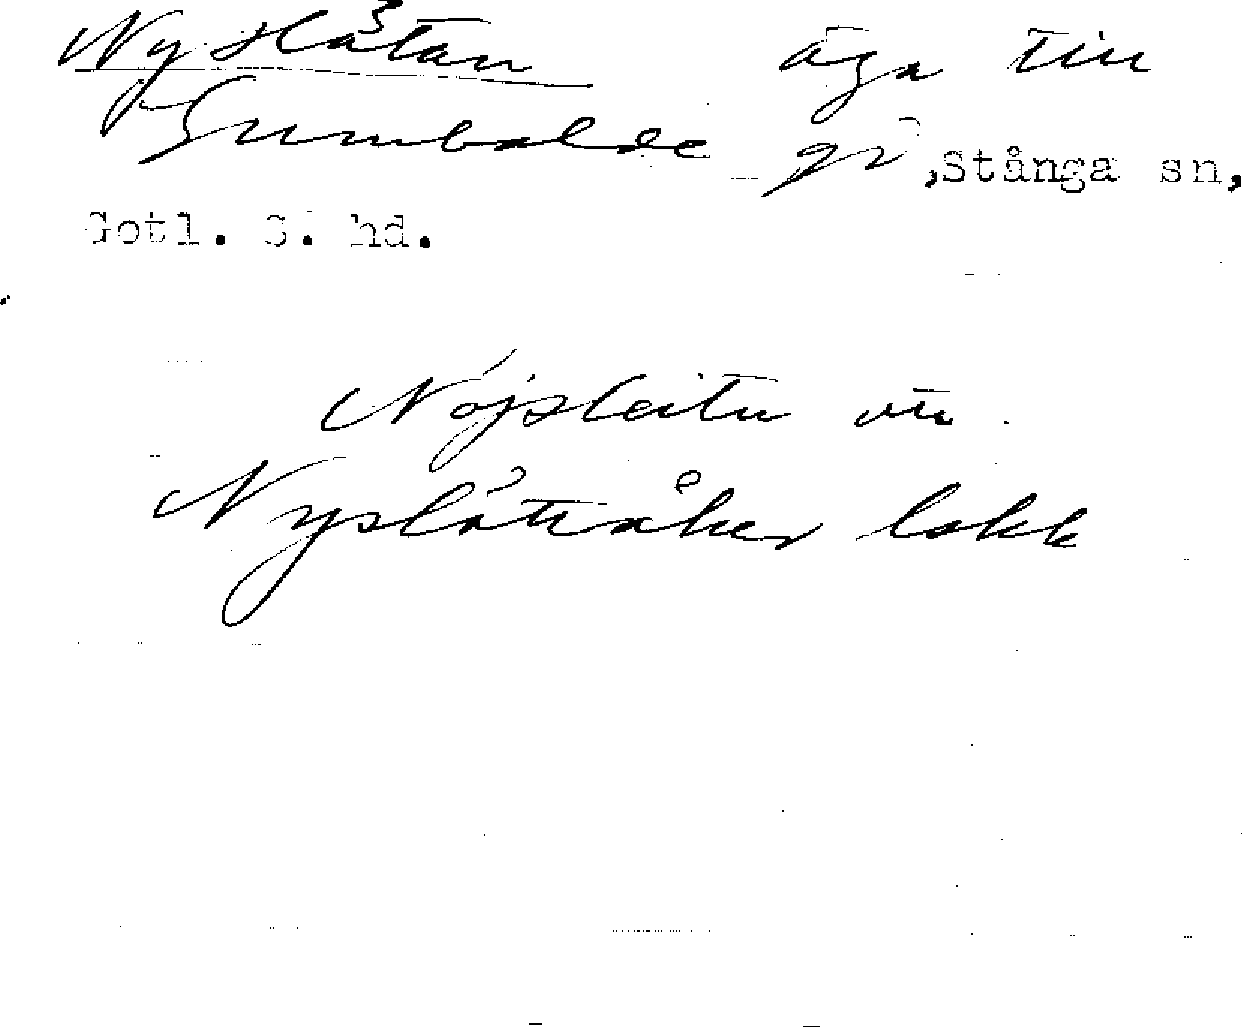 Nyslåtan äga till
Gumbalde gd, Stånga sn,
Gotl. S. hd.
Nöjsleitu
Nyslåttsåker lokk